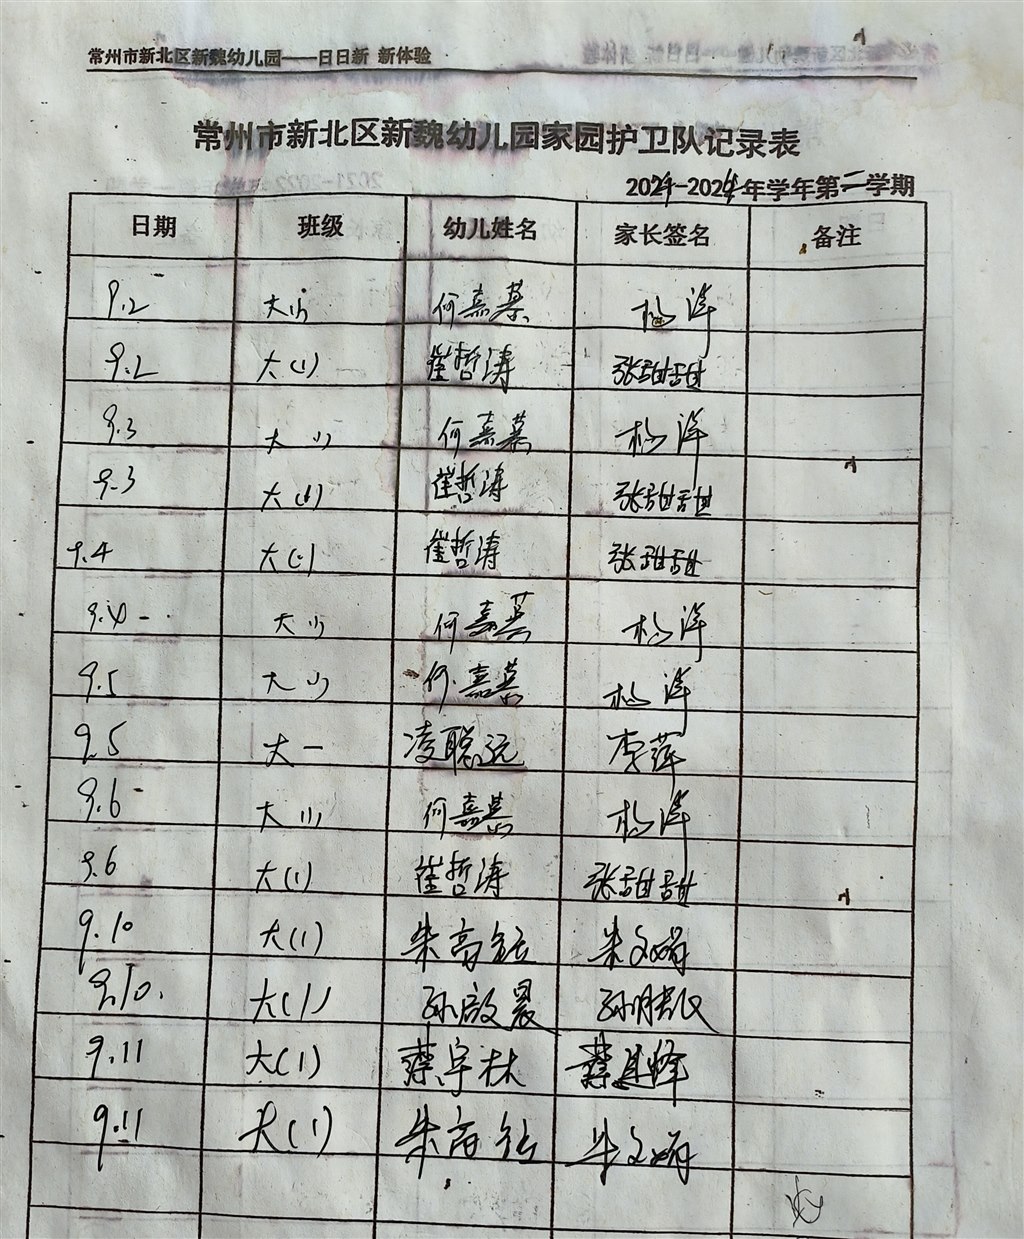 常州市新北区新魏幼儿园——日日新 新体验
常州市新北区新魏幼儿园家园护卫队记录表
2024-2024年学年第二学期
日期 班级 幼儿姓名 家长签名 备注
9.2 大(1) 何嘉慕 杨洋
9.2 大(1) 崔哲涛 张甜甜
9.3 大(1) 何嘉慕 杨洋
9.3 大(1) 崔哲涛 张甜甜
9.4 大(1) 崔哲涛 张甜甜
9.4 大(1) 何嘉慕 杨洋
9.5 大(1) 何嘉慕 杨洋
9.5 大一 凌聪远 李萍
9.6 大(1) 何嘉慕 杨洋
9.6 大(1) 崔哲涛 张甜甜
9.10 大(1) 朱高 朱文娟
9.10. 大(1) 孙啟晨 孙明
9.11 大(1) 蔡宇林 蔡其峰
9.11 大(1) 朱高 朱文娟